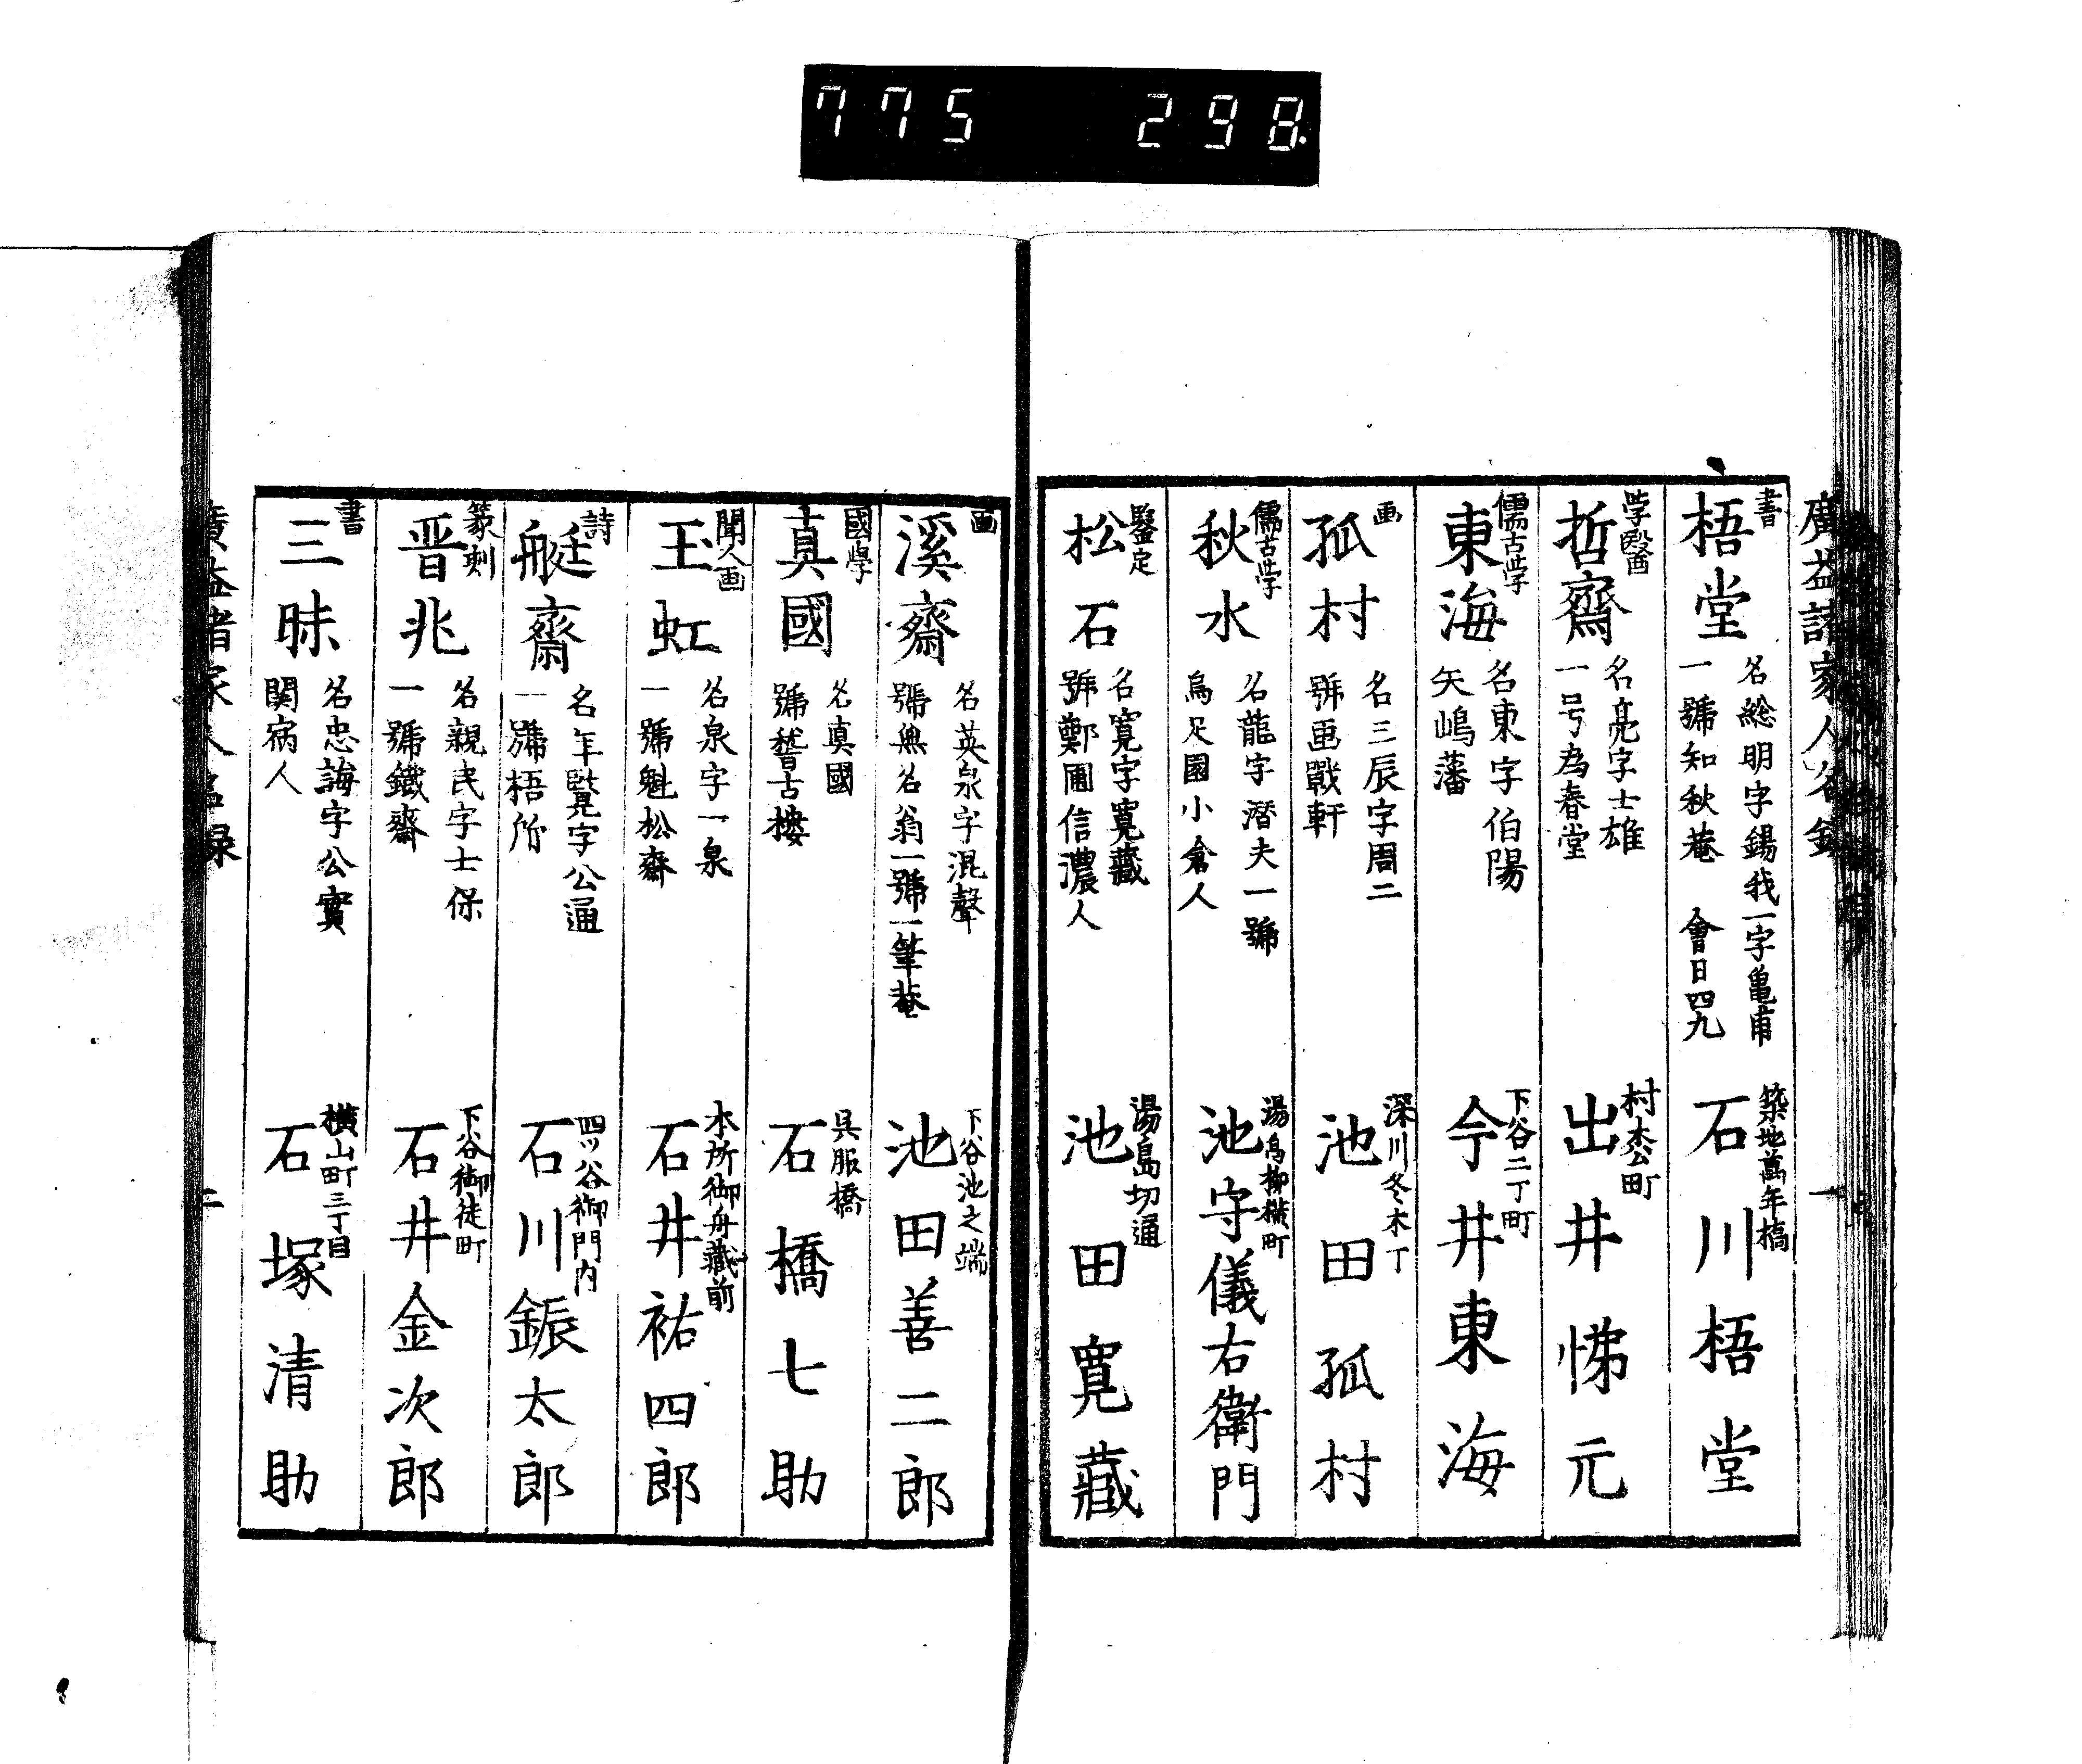 775 298
廣益諸家人名録
書
梧堂
名総明字錫我一字亀甫
一號知秋菴 會日四九
築地萬年橋
石川梧堂
学醫
哲齋
名亮字士雄
一号為春堂
村松町
出井悌元
儒古学
東海
名東字伯陽
矢嶋藩
下谷二丁町
今井東海
画
孤村
名三辰字周二
號画戰軒
深川冬木丁
池田孤村
儒古学
秋水
名龍字潛夫一號
烏足園小倉人
湯島柳横町
池守儀右衛門
鑒定
松石
名寛字寛藏
號鄭圃信濃人
湯島切通
池田寛藏
画
溪齋
名英泉字混聲
號無名翁一號一筆菴
下谷池之端
池田善二郎
國學
真國
名真國
號稽古樓
呉服橋
石橋七助
聞人画
玉虹
名泉字一泉
一號魁松齋
本所御舟藏前
石井祐四郎
詩
艇齋
名年賢字公通
一號梧所
四ッ谷御門内
石川鋠太郎
篆刻
晋兆
名親民字士保
一號鐵齋
下谷御徒町
石井金次郎
書
三昧
名忠誨字公實
関病人
横山町三丁目
石塚清助
廣益諸家人名録
二